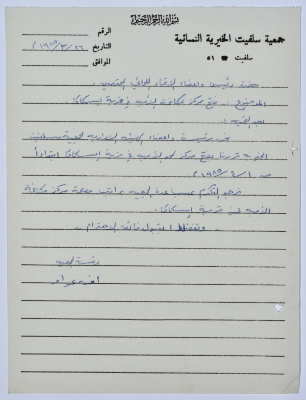 بسم الله الرحمن الرحيم
جمعية سلفيت الخيرية النسائية
سلفيت ☎ ٥١
الرقم
التاريخ ١٦/٣/١٩٨٥ م
الموافق
حضرة رئيس واعضاء الاتحاد اللوائي المحترمين
الموضوع - فتح مركز مكافحة الامية في قرية اسكاكا
بعد التحية
نحن رئيسة واعضاء الهيئة الادارية لجمعية سلفيت
الخيرية قررنا فتح مركز محو الامية في قرية اسكاكا ابتداءً
من ١/٤/١٩٨٥ م
نرجو التكرم بمساعدة الجمعية براتب معلمة مركز مكافحة
الامية في قرية اسكاكا
وتفضلوا بقبول فائق الاحترام
رئيسة الجمعية